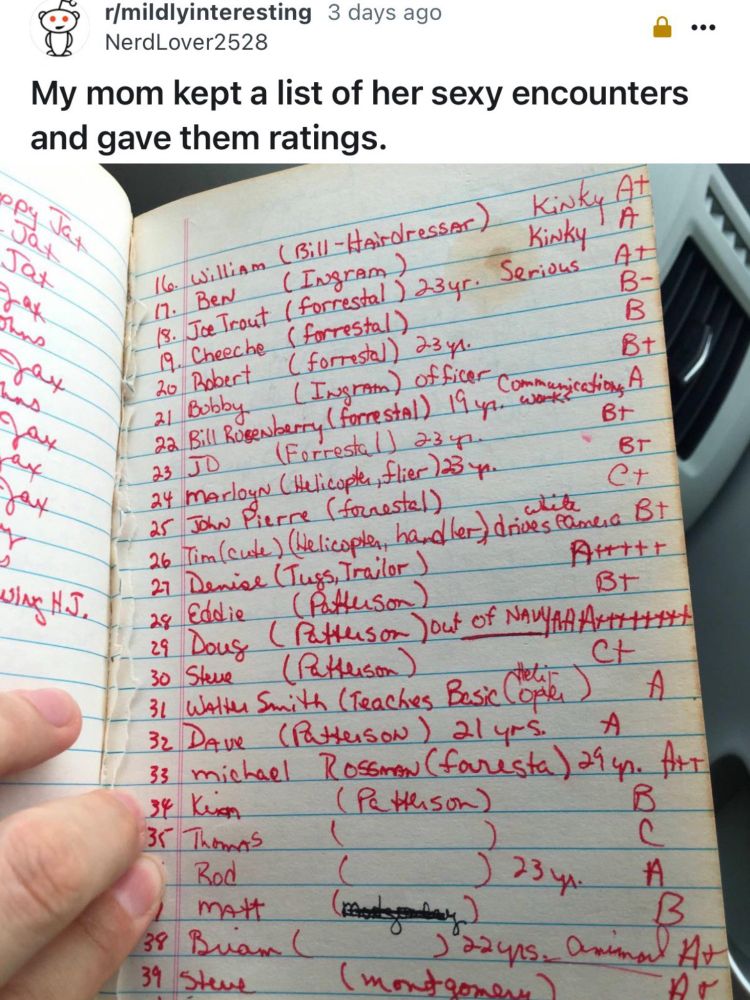 r/mildlyinteresting 3 days ago
NerdLover2528
My mom kept a list of her sexy encounters
and gave them ratings.
ppy Jax
Jax
Jax
Jax
Jax
Jax
Jax
Jax
wing H.J.
16. William (Bill-Hairdresser) Kinky A+
17. Ben (Ingram) Kinky A
18. Joe Trout (forrestal) 23 yr. Serious A+
19. Cheeche (forrestal) B-
20 Robert (forrestal) 23 yr. B
21 Bobby (Ingram) officer B+
22 Bill Rosenberry (forrestal) 19 yr. works Communications A
23 JD (Forrestal) 23 yr. B+
24 Marloyn (Helicopter, flier) 23 yr. B+
25 John Pierre (forrestal) C+
26 Tim (cute) (Helicopter, handler) drives white Camero B+
27 Denise (Tugs, Trailor) A+++++
28 Eddie (Patterson) B+
29 Doug (Patterson) out of NAVY AAA++++++++
30 Steve (Patterson) C+
31 Walter Smith (Teaches Basic Helicopter) A
32 Dave (Patterson) 21 yrs. A
33 michael Rossman (foresta) 29 yr. A++
34 (Patterson) B
35 Thomas ( ) C
Rod ( ) 23 yr. A
matt ( ) B
38 Brian ( ) 22 yrs. animal A+
39 Steve (montgomery) A+